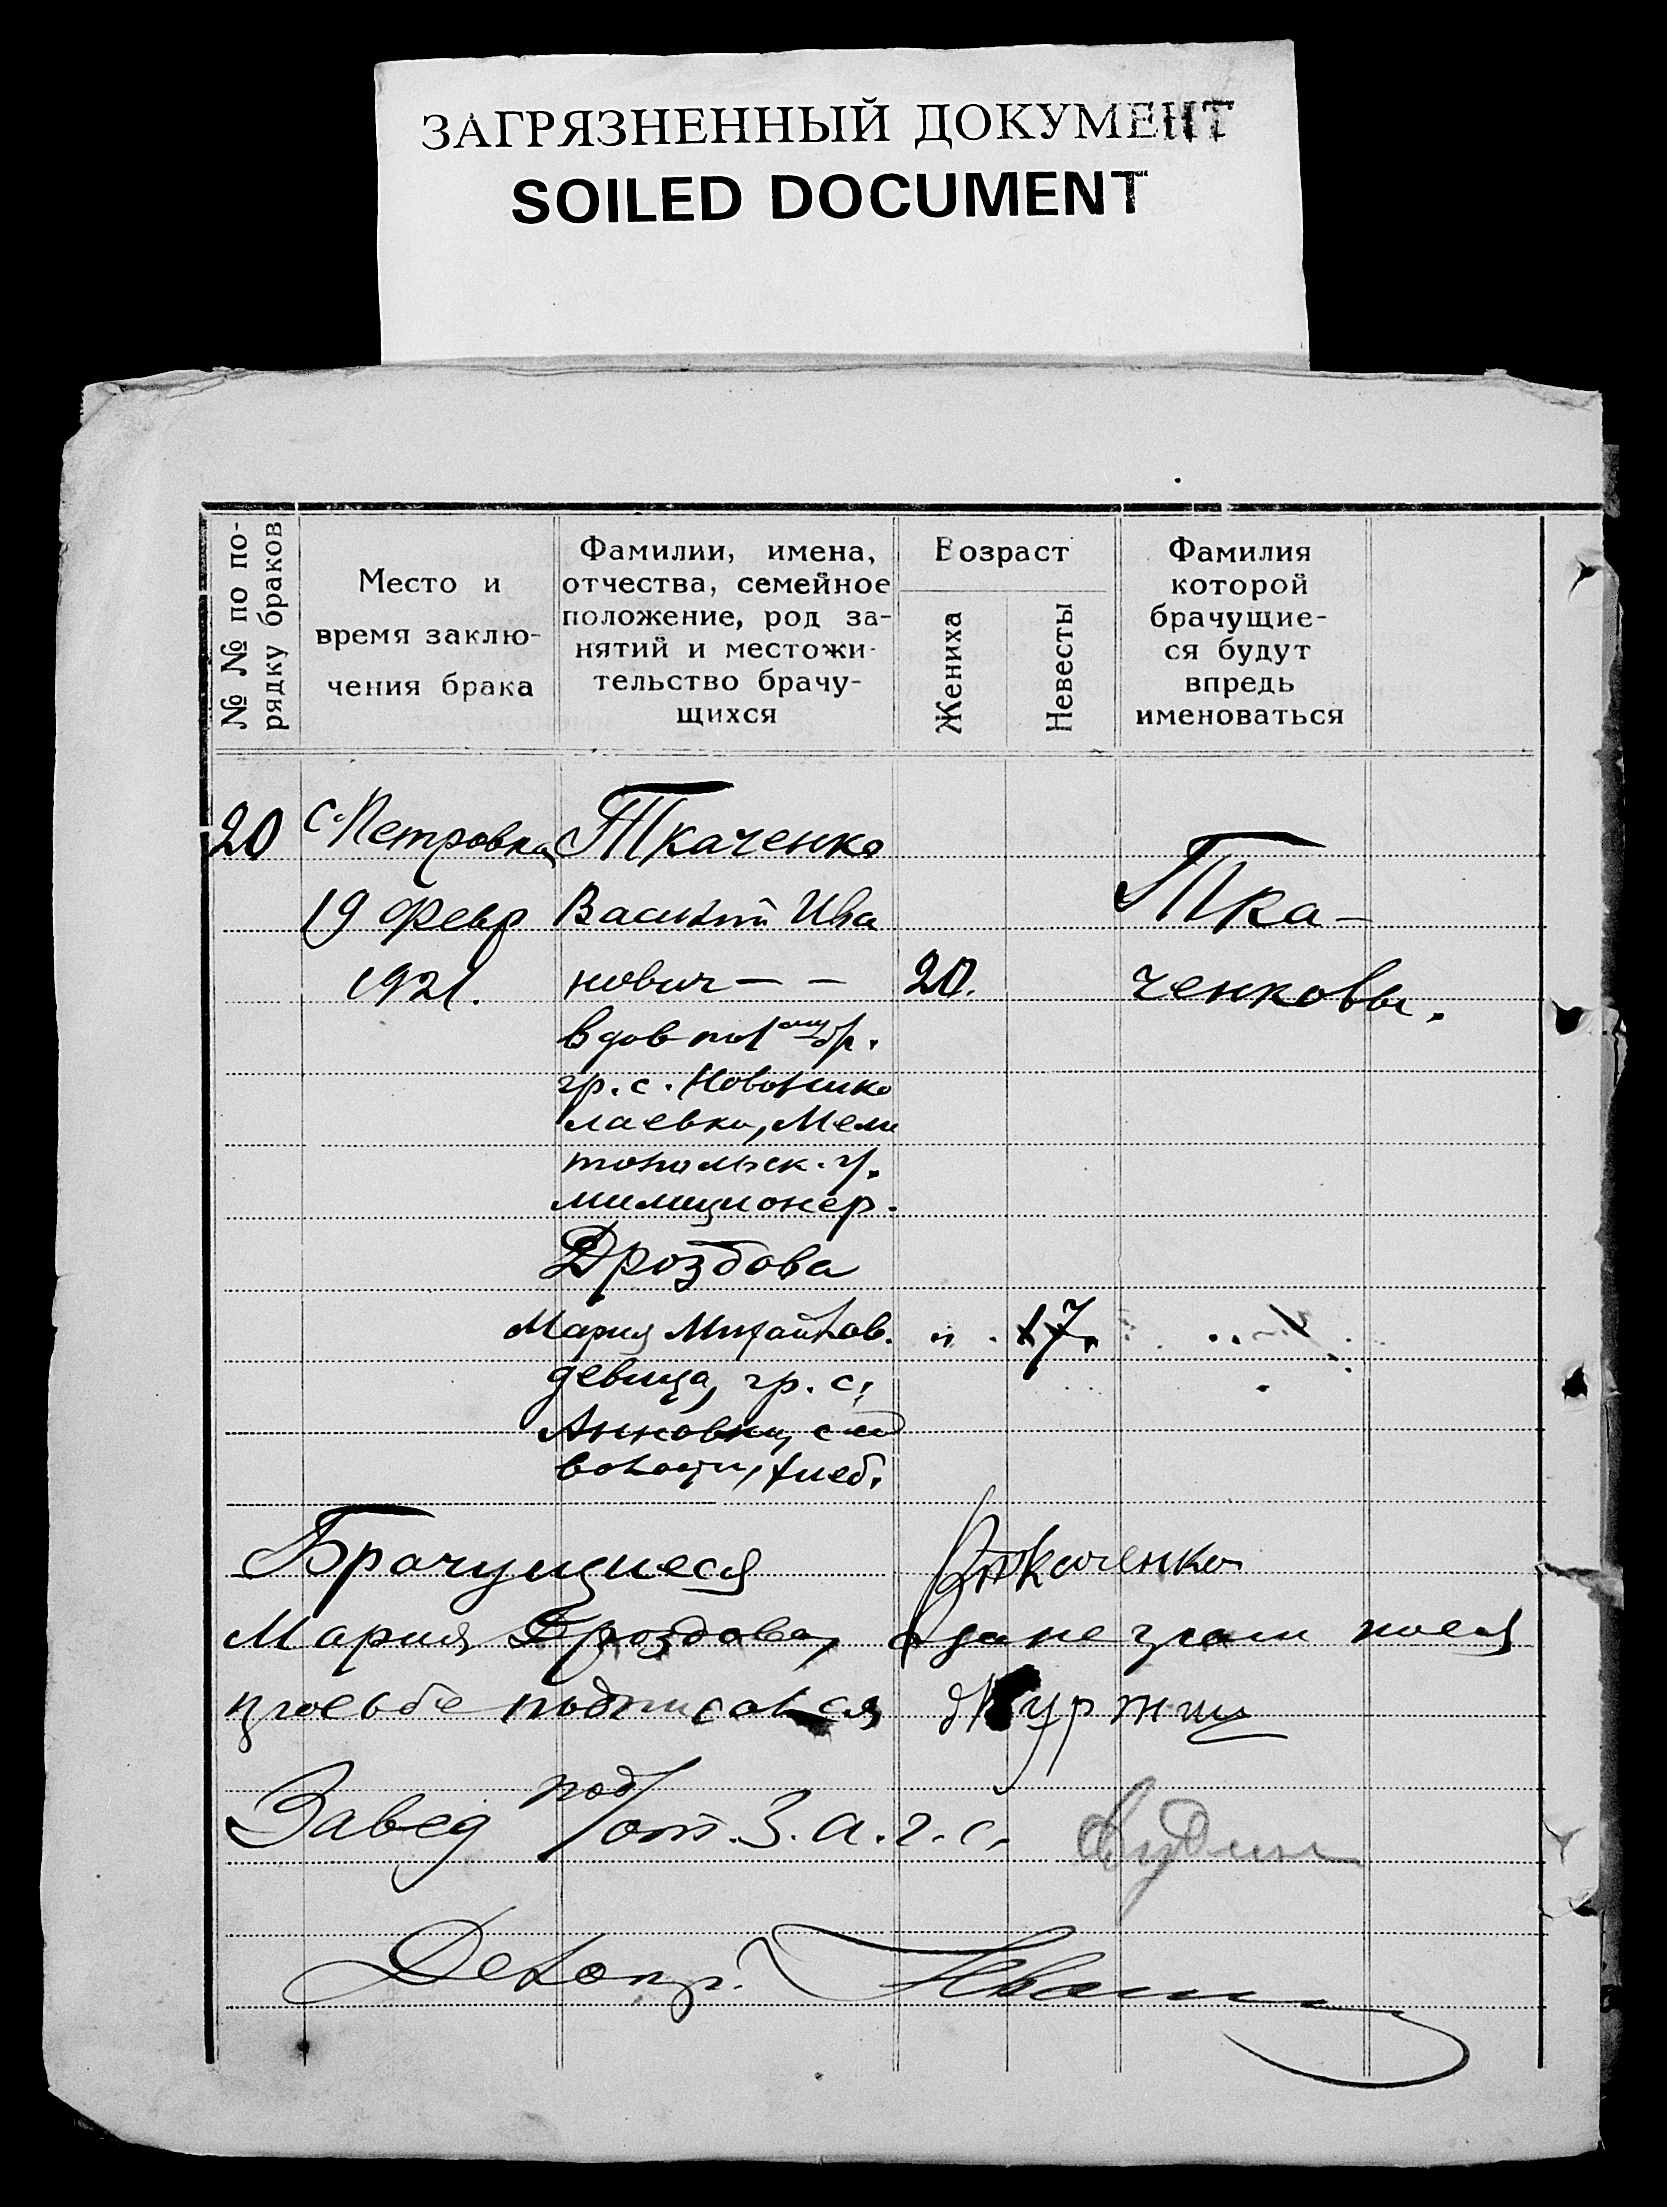 ЗАГРЯЗНЕННЫЙ ДОКУМЕНТ
SOILED DOCUMENT
№ № по по-
рядку браков
Место и
время заклю-
чения брака
Фамилии, имена,
отчества, семейное
положение, род за-
нятий и местожи-
тельство брачу-
щихся
Возраст
Жениха
Невесты
Фамилия
которой
брачущие-
ся будут
впредь
именоваться
20
с. Петровка
19 Февр
1921.
Ткаченко
Василий Ива
нович — —
20.
вдов по 1 бр.
гр. с. Новонико
лаевки, Мели
топольск. у.
милиционер.
Тка-
ченковы.
Дроздова
Мария Михайлов.
" 17.
девица, гр. с.
Анновки, сей
волости, хлеб.
Брачущиеся ВТкаченко
Мария Дроздова, а за не
подписался
Завед под/отд. З.а.г.с.
Делопр. Иван